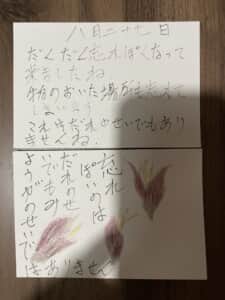 八月二十七日
だんだん忘れぽくなって
来ましたね
物のおいた場所も忘れて
しまいます
これはだれのせいでもあり
ませんね
忘れ
ぽいのは
だれのせ
いでもみ
ようがのせいで
はありません